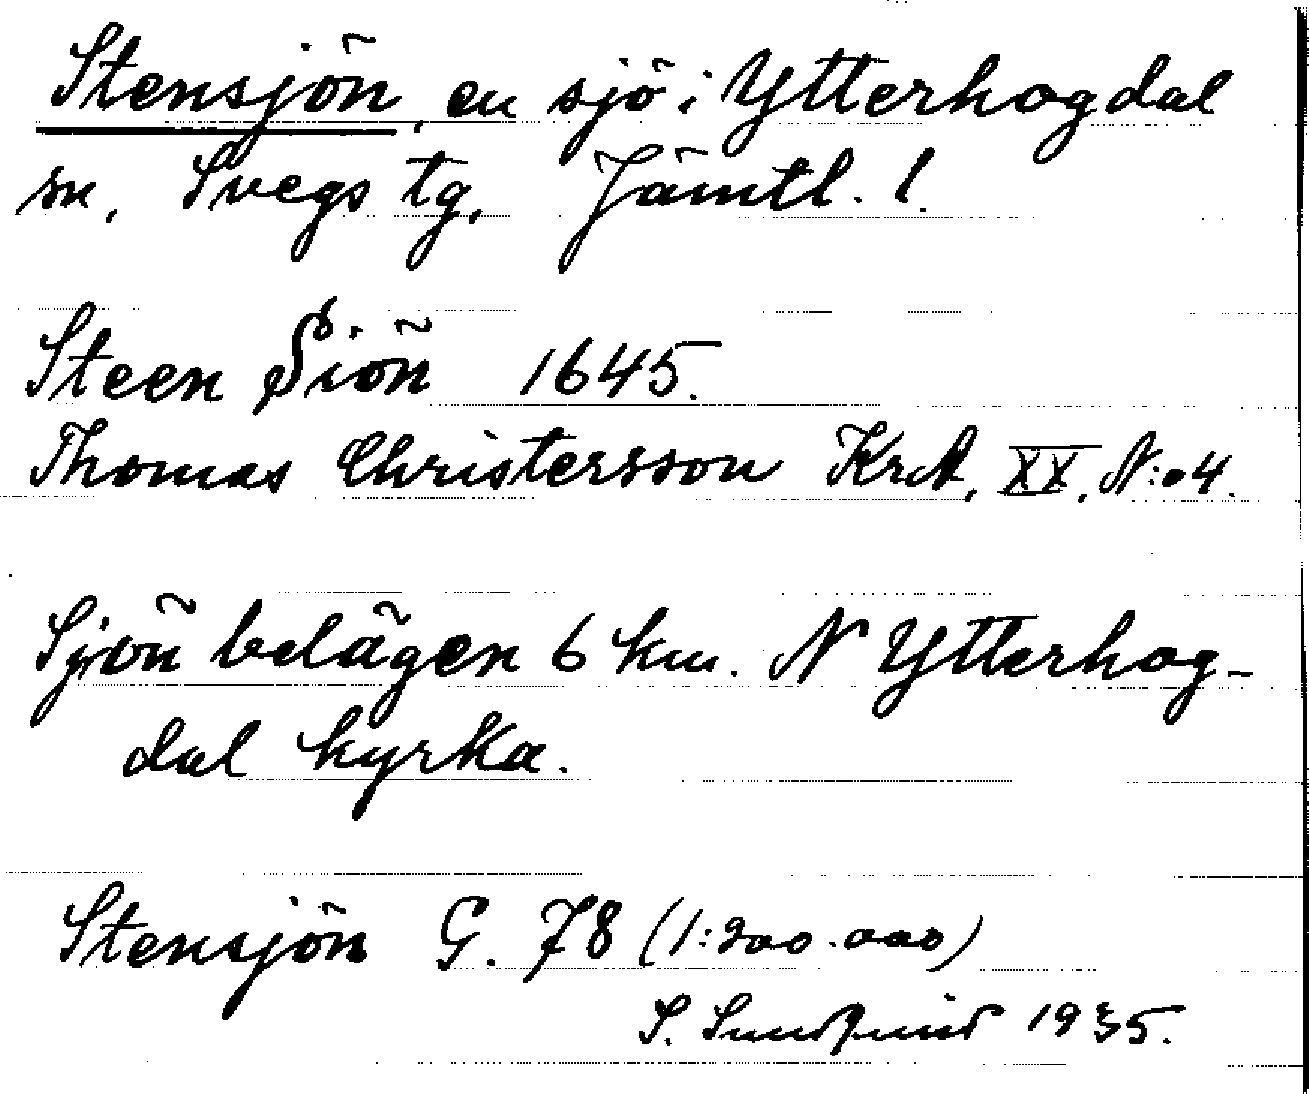 Stensjön, en sjö i Ytterhogdal
sn, Svegs tg, Jämtl. l.
Steen Siön 1645.
Thomas Christersson KrA, XX, N:o 4.
Sjön belägen 6 km. N Ytterhog-
dal kyrka.
Stensjön G. 78 (1:200.000)
S. Sundqvist 1935.